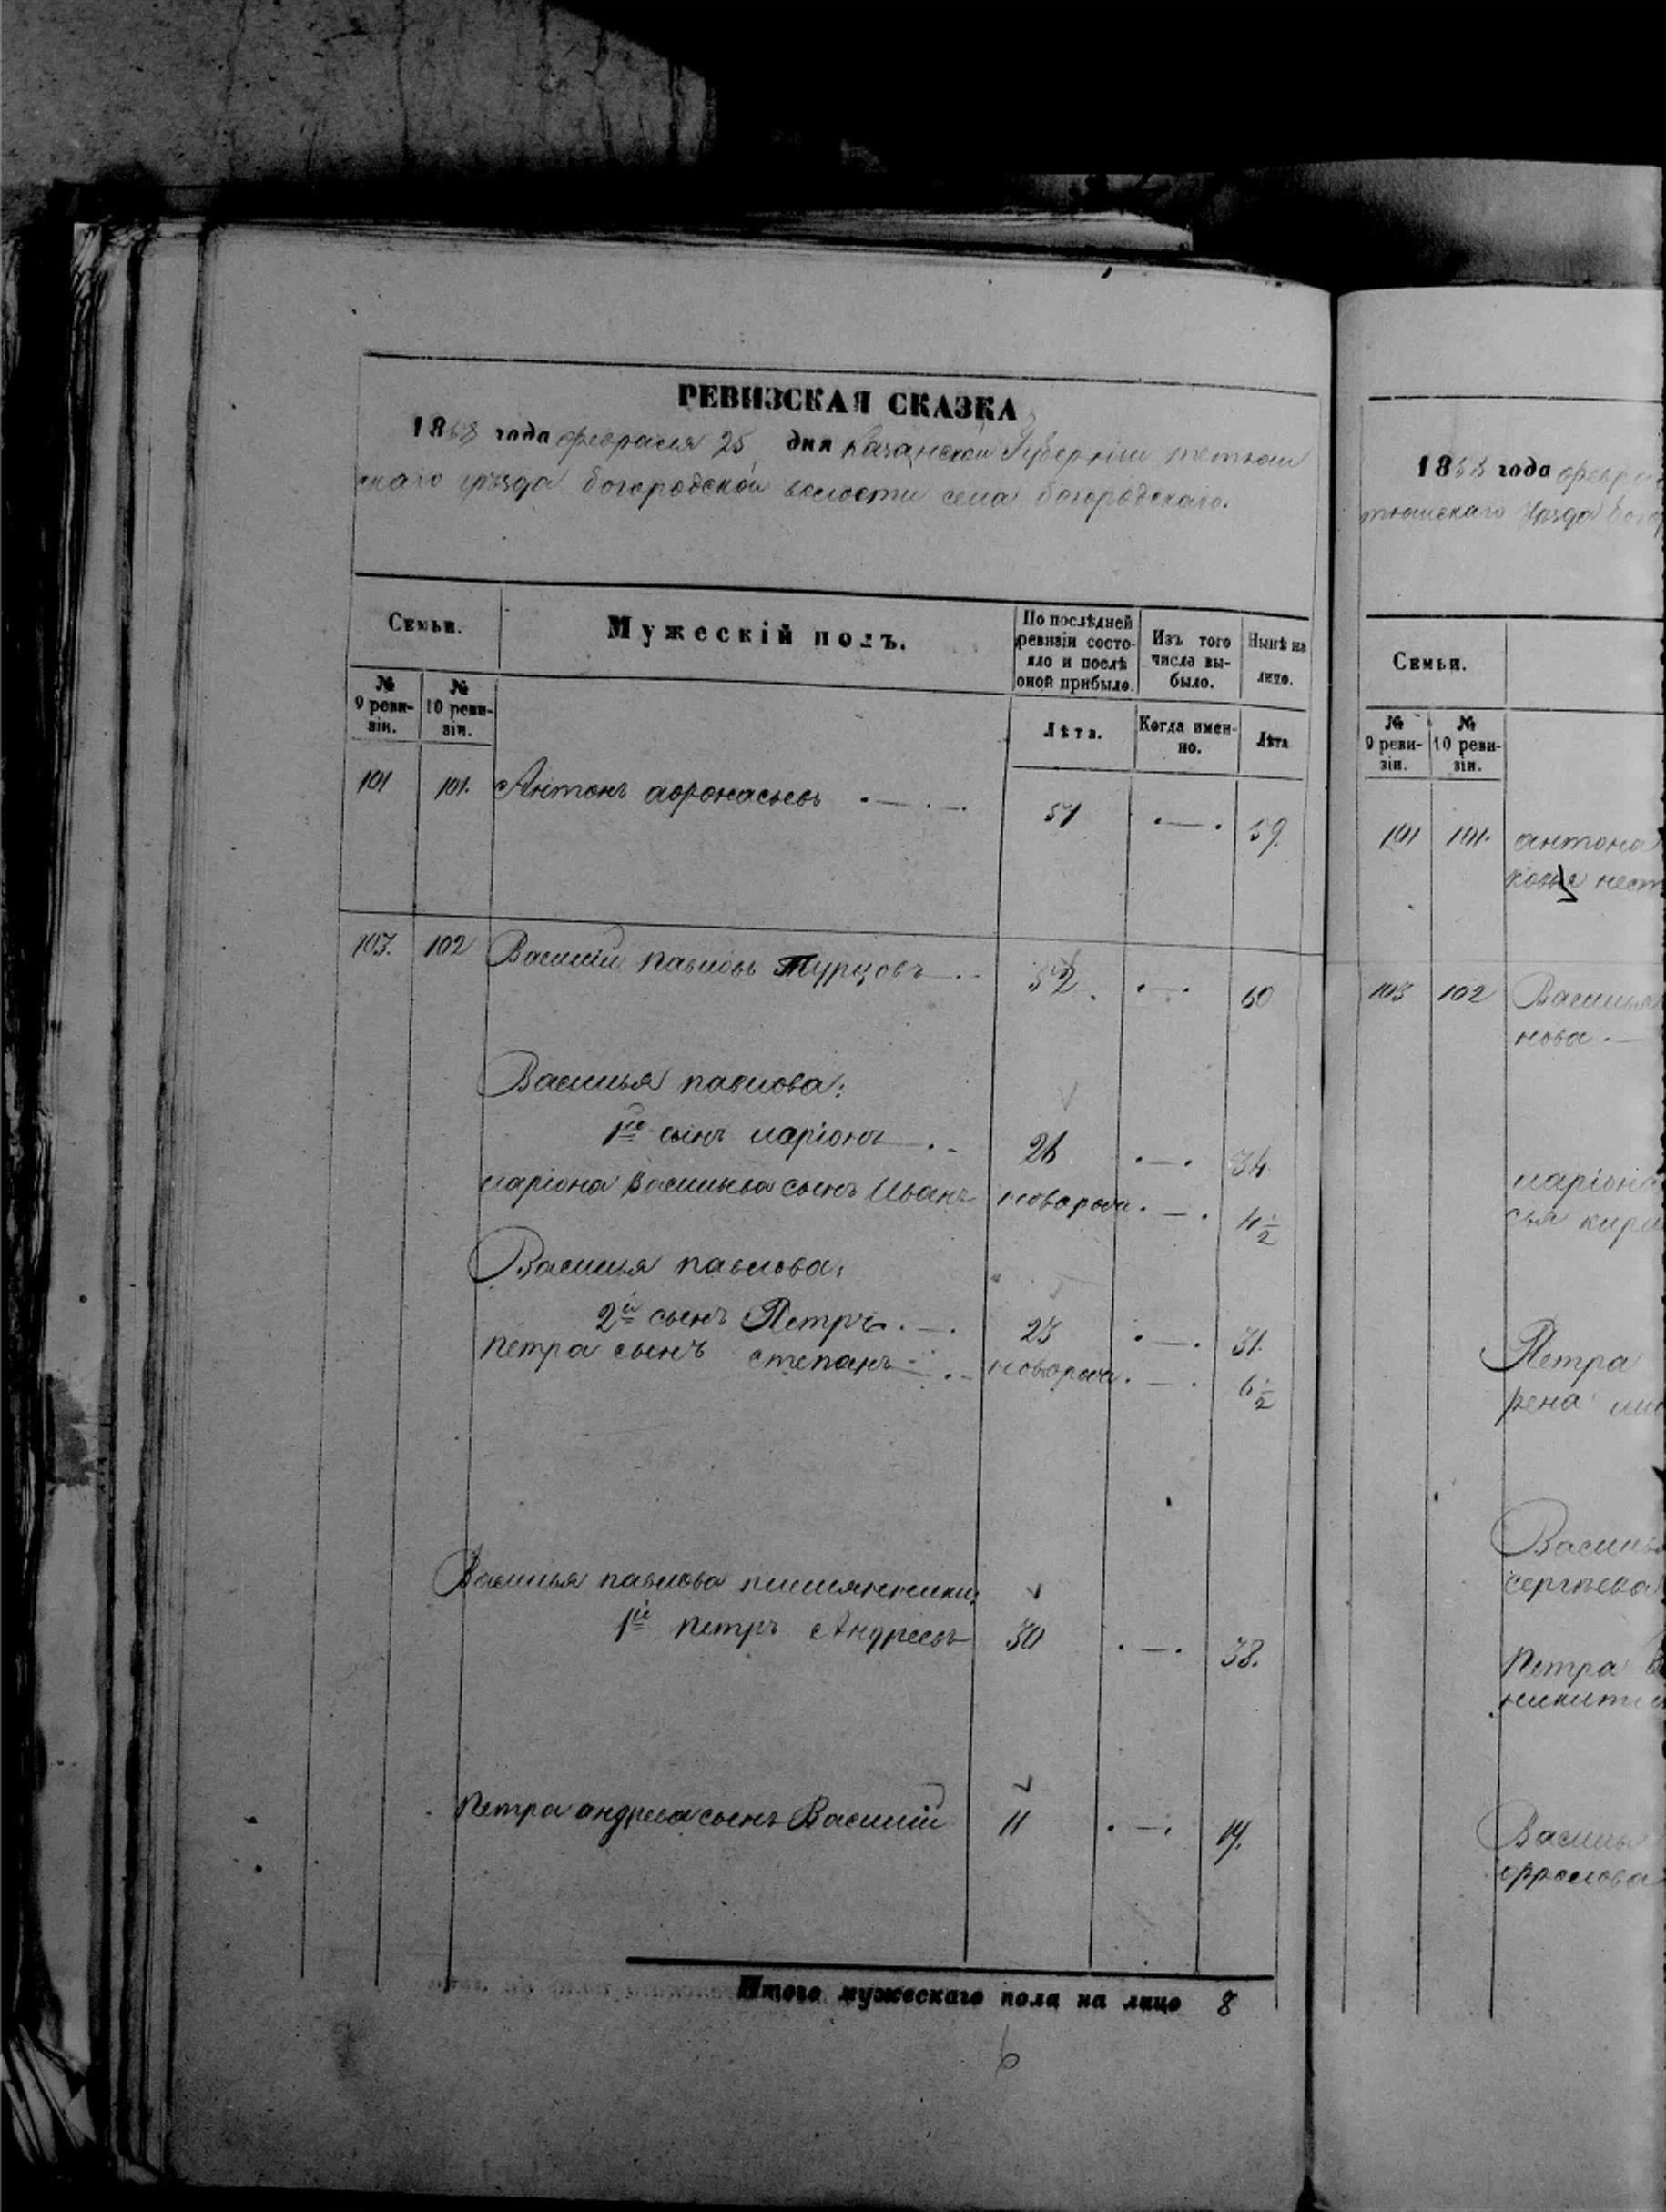 РЕВИЗСКАЯ СКАЗКА
1858 года февраля 25 дня Казанской Губерніи тетюш
скаго уѣзда богородской волости села богородскаго.
Семьи.
Мужескій полъ.
По послѣдней ревизіи состояло и послѣ оной прибыло.
Изъ того числа выбыло.
Нынѣ на лицо.
№ 9 ревизіи.
№ 10 ревизіи.
Лѣта.
Когда именно.
Лѣта
101 101. Антонъ афонасьевъ 51 59.
103. 102 Василій павловъ Турцовъ 52 60
Василья павлова:
1й сынъ ларіонъ 26 34
ларіона Васильева сынъ Иванъ новорож. 4 1/2
Василья павлова:
2й сынъ Петръ 23 31.
петра сынъ степанъ новорож. 6 1/2
Василья павлова племянники:
1й петръ Андреевъ 30 38.
Петра андреева сынъ Василій 11 19.
Итого мужескаго пола на лицо 8
6
1858 года февра
тюшскаго Уѣзда бого
Семьи.
№ 9 ревизіи.
№ 10 ревизіи.
101 101. антона
103 102 Василья
нова.
ларіона
Петра
Василья
сергѣева
Петра
никити
Василья
фролова